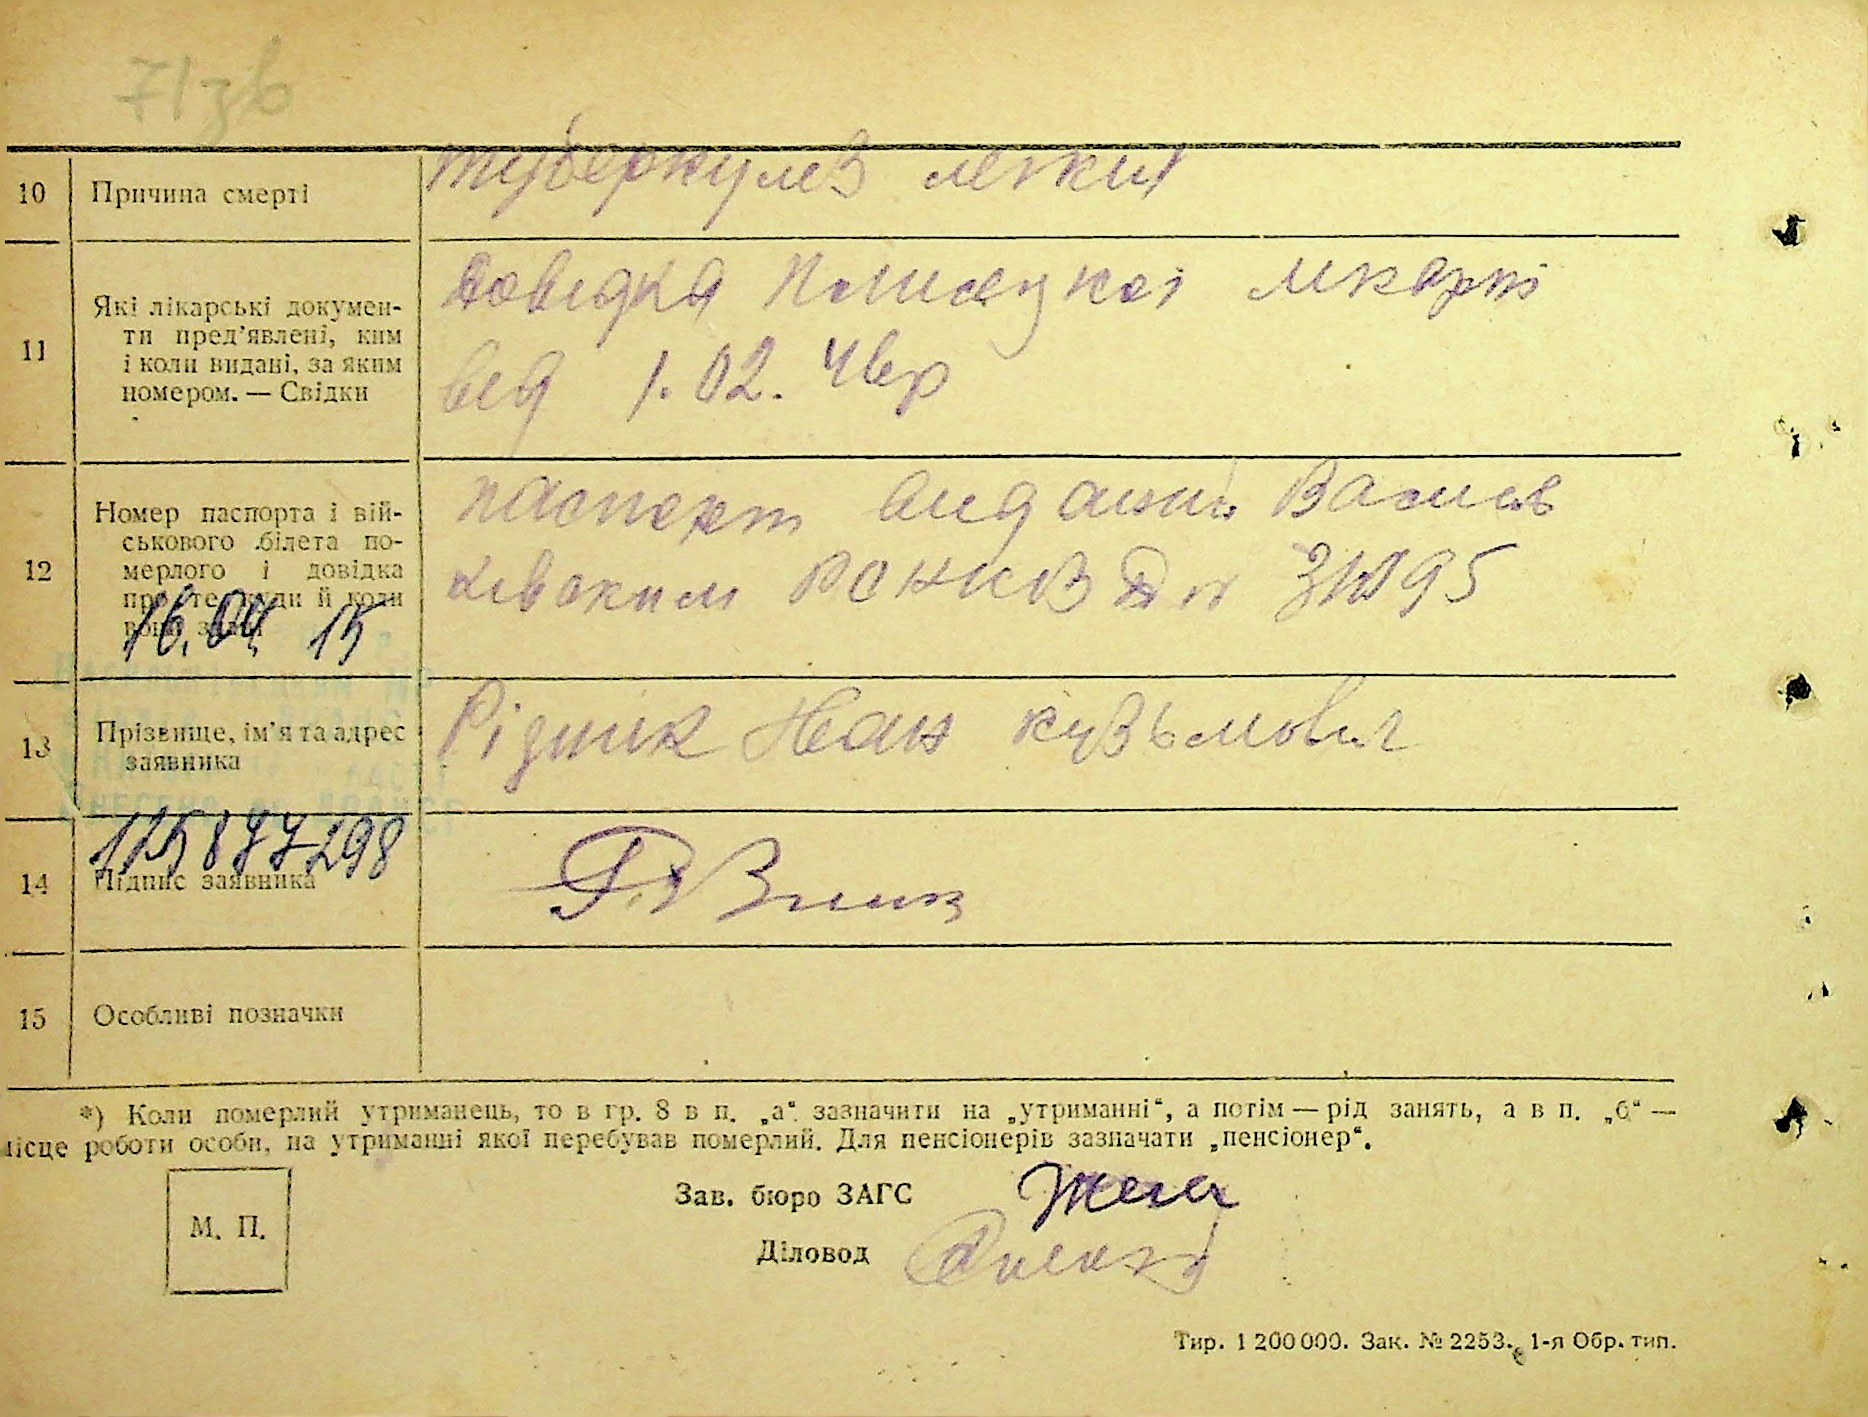 71зв
10 Причина смерті
туберкулез легких
11 Які лікарські докумен-
ти пред’явлені, ким
і коли видані, за яким
номером. — Свідки
довідка лікарні
від 1.02. 46р
12 Номер паспорта і вій-
ського білета по-
мерлого і довідка
про те, куди й коли
вони здані
паспорт виданий Василь
ківським РОНКВД №
16.04 15
13 Прізвище, ім’я та адрес
заявника
Рідник Іван Кузьмович
115877298
14 Підпис заявника
15 Особливі позначки
*) Коли померлий утриманець, то в гр. 8 в п. „а“ зазначити на „утриманні“, а потім — рід занять, а в п. „б“ —
місце роботи особи, на утриманні якої перебував померлий. Для пенсіонерів зазначати „пенсіонер“.
М. П.
Зав. бюро ЗАГС
Діловод
Тир. 1 200 000. Зак. № 2253. 1-я Обр. тип.